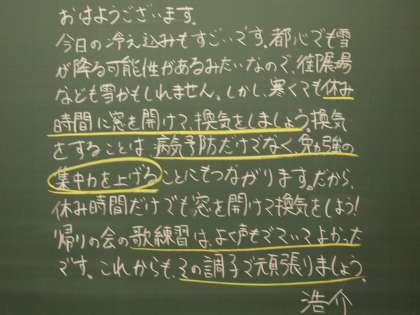 おはようございます。
今日の冷え込みもすごいです。都心でも雪
が降る可能性があるみたいなので、御殿場
なども雪かもしれません。しかし、寒くても休み
時間に窓を開けて、換気をしましょう。換気
をすることは、病気予防だけでなく、勉強の
集中力を上げることにもつながります。だから、
休み時間だけでも窓を開けて換気をしよう!
帰りの会の歌練習は、よく声もでていてよかった
です。これからも、その調子で頑張りましょう。
浩介